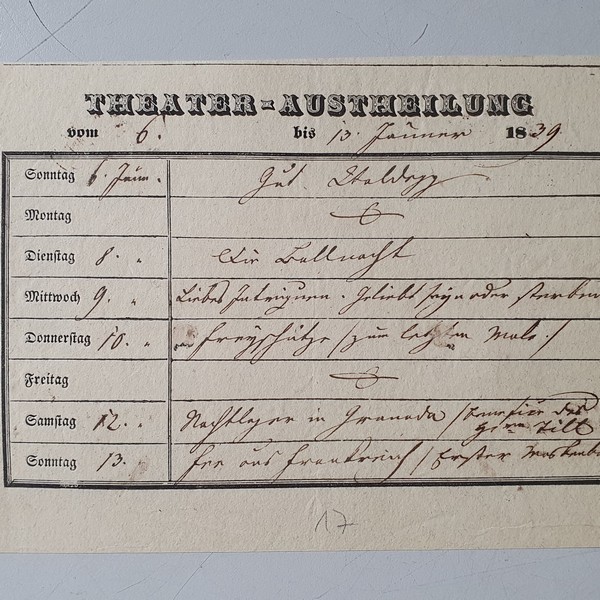 THEATER-AUSTHEILUNG
vom 6. bis 13. Jänner 1839.
Sonntag 6. Jänn.
Montag
Dienstag 8. „ Die Ballnacht
Mittwoch 9. „ Liebes Intriguen. Geliebt seyn oder sterben
Donnerstag 10. „ Freyschütze /zum letzten Male./
Freitag
Samstag 12. „ Nachtlager in Granada /Benefice des
Sonntag 13. „ Fee aus Frankreich / Erster Maskenba
17